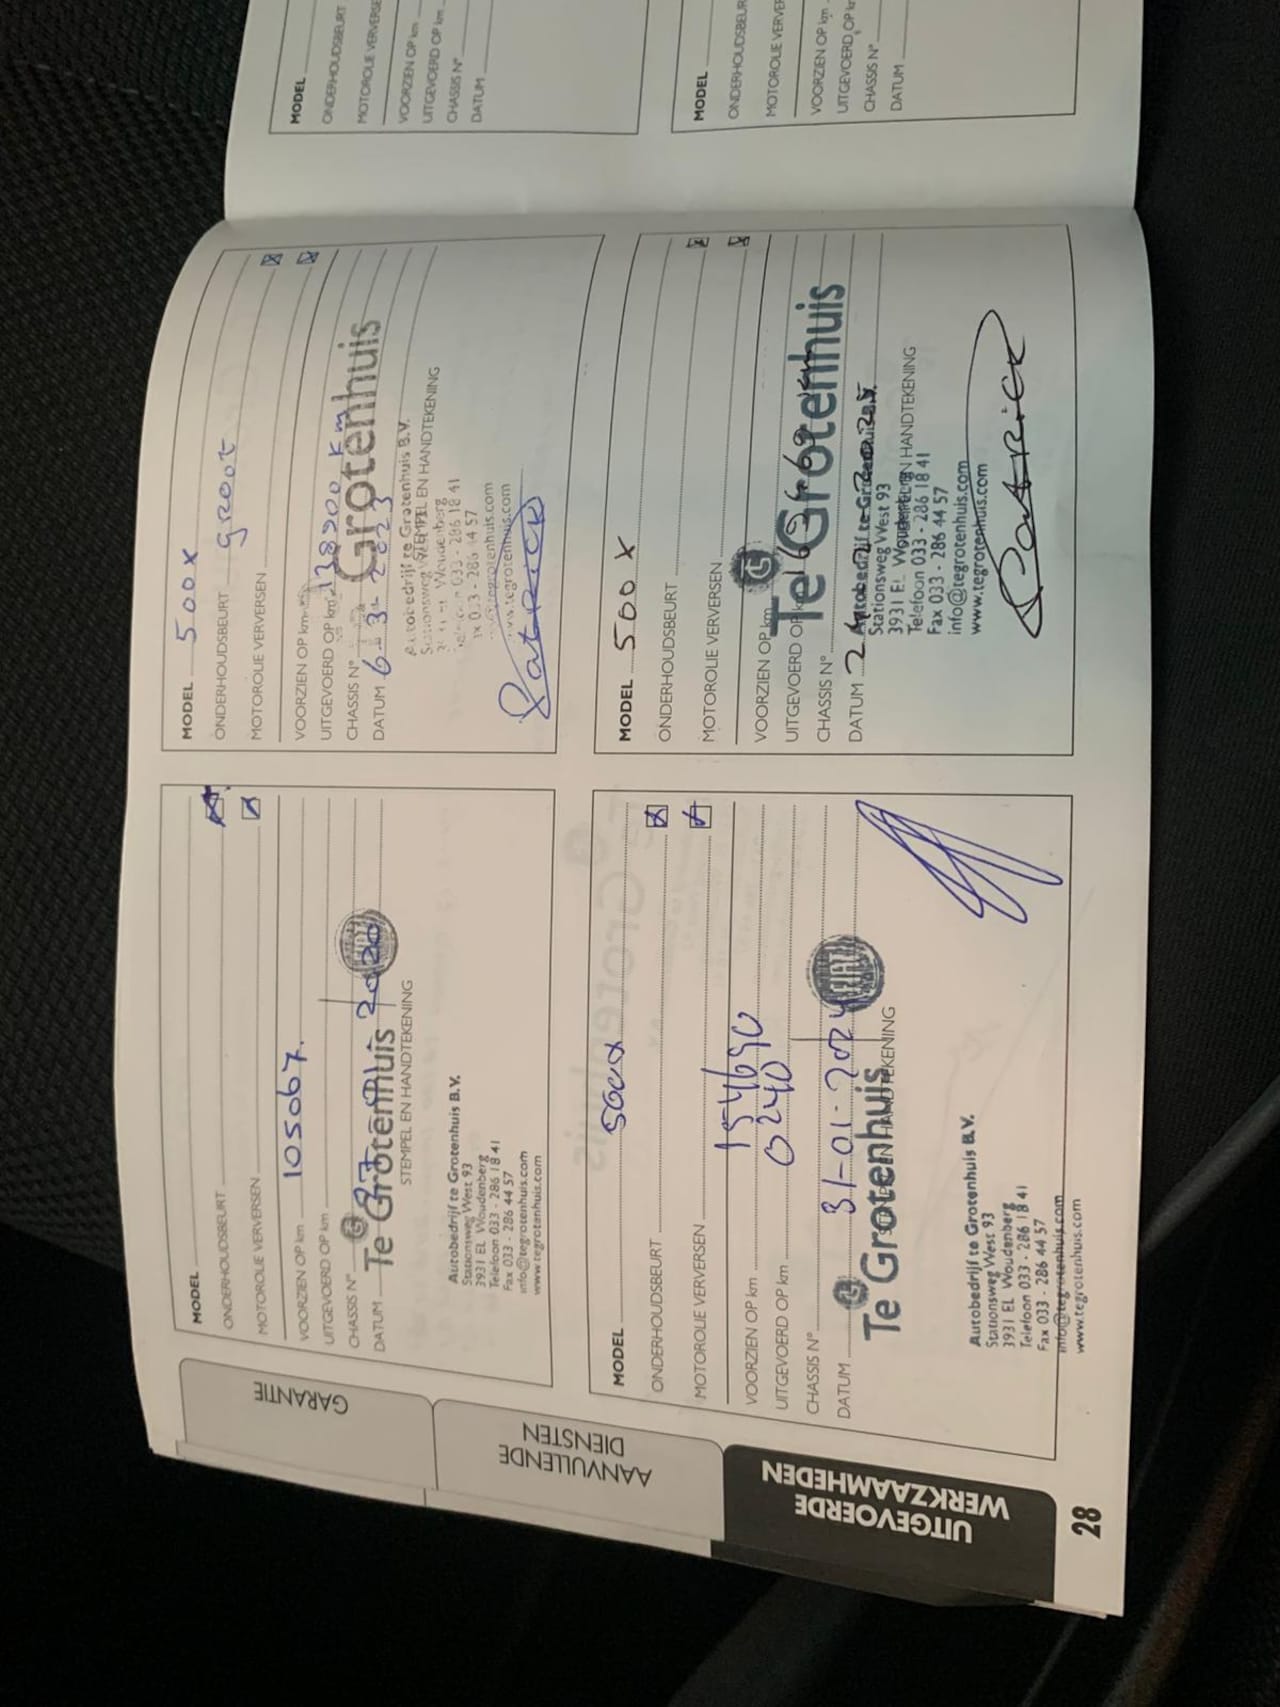 MODEL
ONDERHOUDSBEURT
MOTOROLIE VERVERSEN
VOORZIEN OP km 105067.
UITGEVOERD OP km
CHASSIS N°
DATUM 2020
Te Grotenhuis
FIAT
STEMPEL EN HANDTEKENING
Autobedrijf te Grotenhuis B.V.
Stationsweg West 93
3931 EL Woudenberg
Telefoon 033 - 286 18 41
Fax 033 - 286 44 57
info@tegrotenhuis.com
www.tegrotenhuis.com
MODEL 500X
ONDERHOUDSBEURT groot
MOTOROLIE VERVERSEN
VOORZIEN OP km
UITGEVOERD OP km 138200 km
CHASSIS N°
DATUM 6-3-2023
Grotenhuis
Autobedrijf te Grotenhuis B.V.
STEMPEL EN HANDTEKENING
Stationsweg West
Woudenberg
033 - 286 18 41
033 - 286 44 57
tegrotenhuis.com
www.tegrotenhuis.com
Patrick
MODEL 500x
ONDERHOUDSBEURT
MOTOROLIE VERVERSEN
VOORZIEN OP km 154690
UITGEVOERD OP km 0240
CHASSIS N°
DATUM 31-01-2024
Te Grotenhuis
FIAT
STEMPEL EN HANDTEKENING
Autobedrijf te Grotenhuis B.V.
Stationsweg West 93
3931 EL Woudenberg
Telefoon 033 - 286 18 41
Fax 033 - 286 44 57
info@tegrotenhuis.com
www.tegrotenhuis.com
MODEL 500X
ONDERHOUDSBEURT
MOTOROLIE VERVERSEN
VOORZIEN OP km
UITGEVOERD OP km
CHASSIS N°
DATUM
Te Grotenhuis
Autobedrijf te Grotenhuis B.V.
Stationsweg West 93
STEMPEL EN HANDTEKENING
3931 EL Woudenberg
Telefoon 033 - 286 18 41
Fax 033 - 286 44 57
info@tegrotenhuis.com
www.tegrotenhuis.com
Patrick
MODEL
ONDERHOUDSBEURT
MOTOROLIE VERVERSE
VOORZIEN OP km
UITGEVOERD OP km
CHASSIS N°
DATUM
MODEL
ONDERHOUDSBEUR
MOTOROLIE VERVER
VOORZIEN OP km
UITGEVOERD OP k
CHASSIS N°
DATUM
GARANTIE
AANVULLENDE
DIENSTEN
UITGEVOERDE
WERKZAAMHEDEN
28